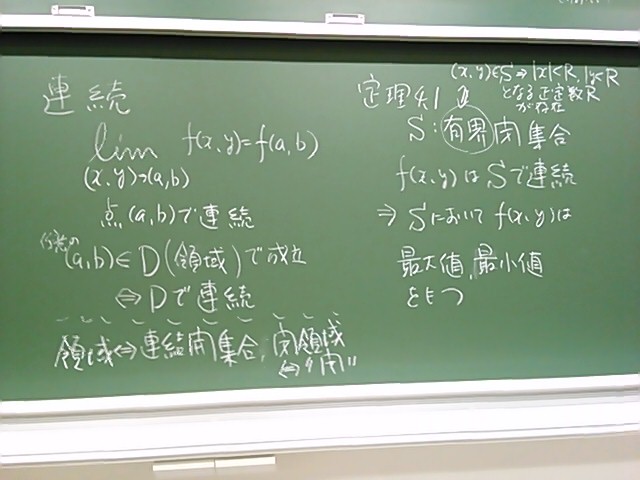 連続
lim f(x,y)=f(a,b)
(x,y)→(a,b)
点(a,b)で連続
任意の
(a,b)∈D(領域)で成立
⇔Dで連続
領域⇔連結開集合,閉領域
⇔〃閉〃
(x,y)∈S⇒|x|<R,|y|<R
となる正定数R
が存在
定理4.1
S:有界閉集合
f(x,y)はSで連続
⇒Sにおいてf(x,y)は
最大値,最小値
をもつ